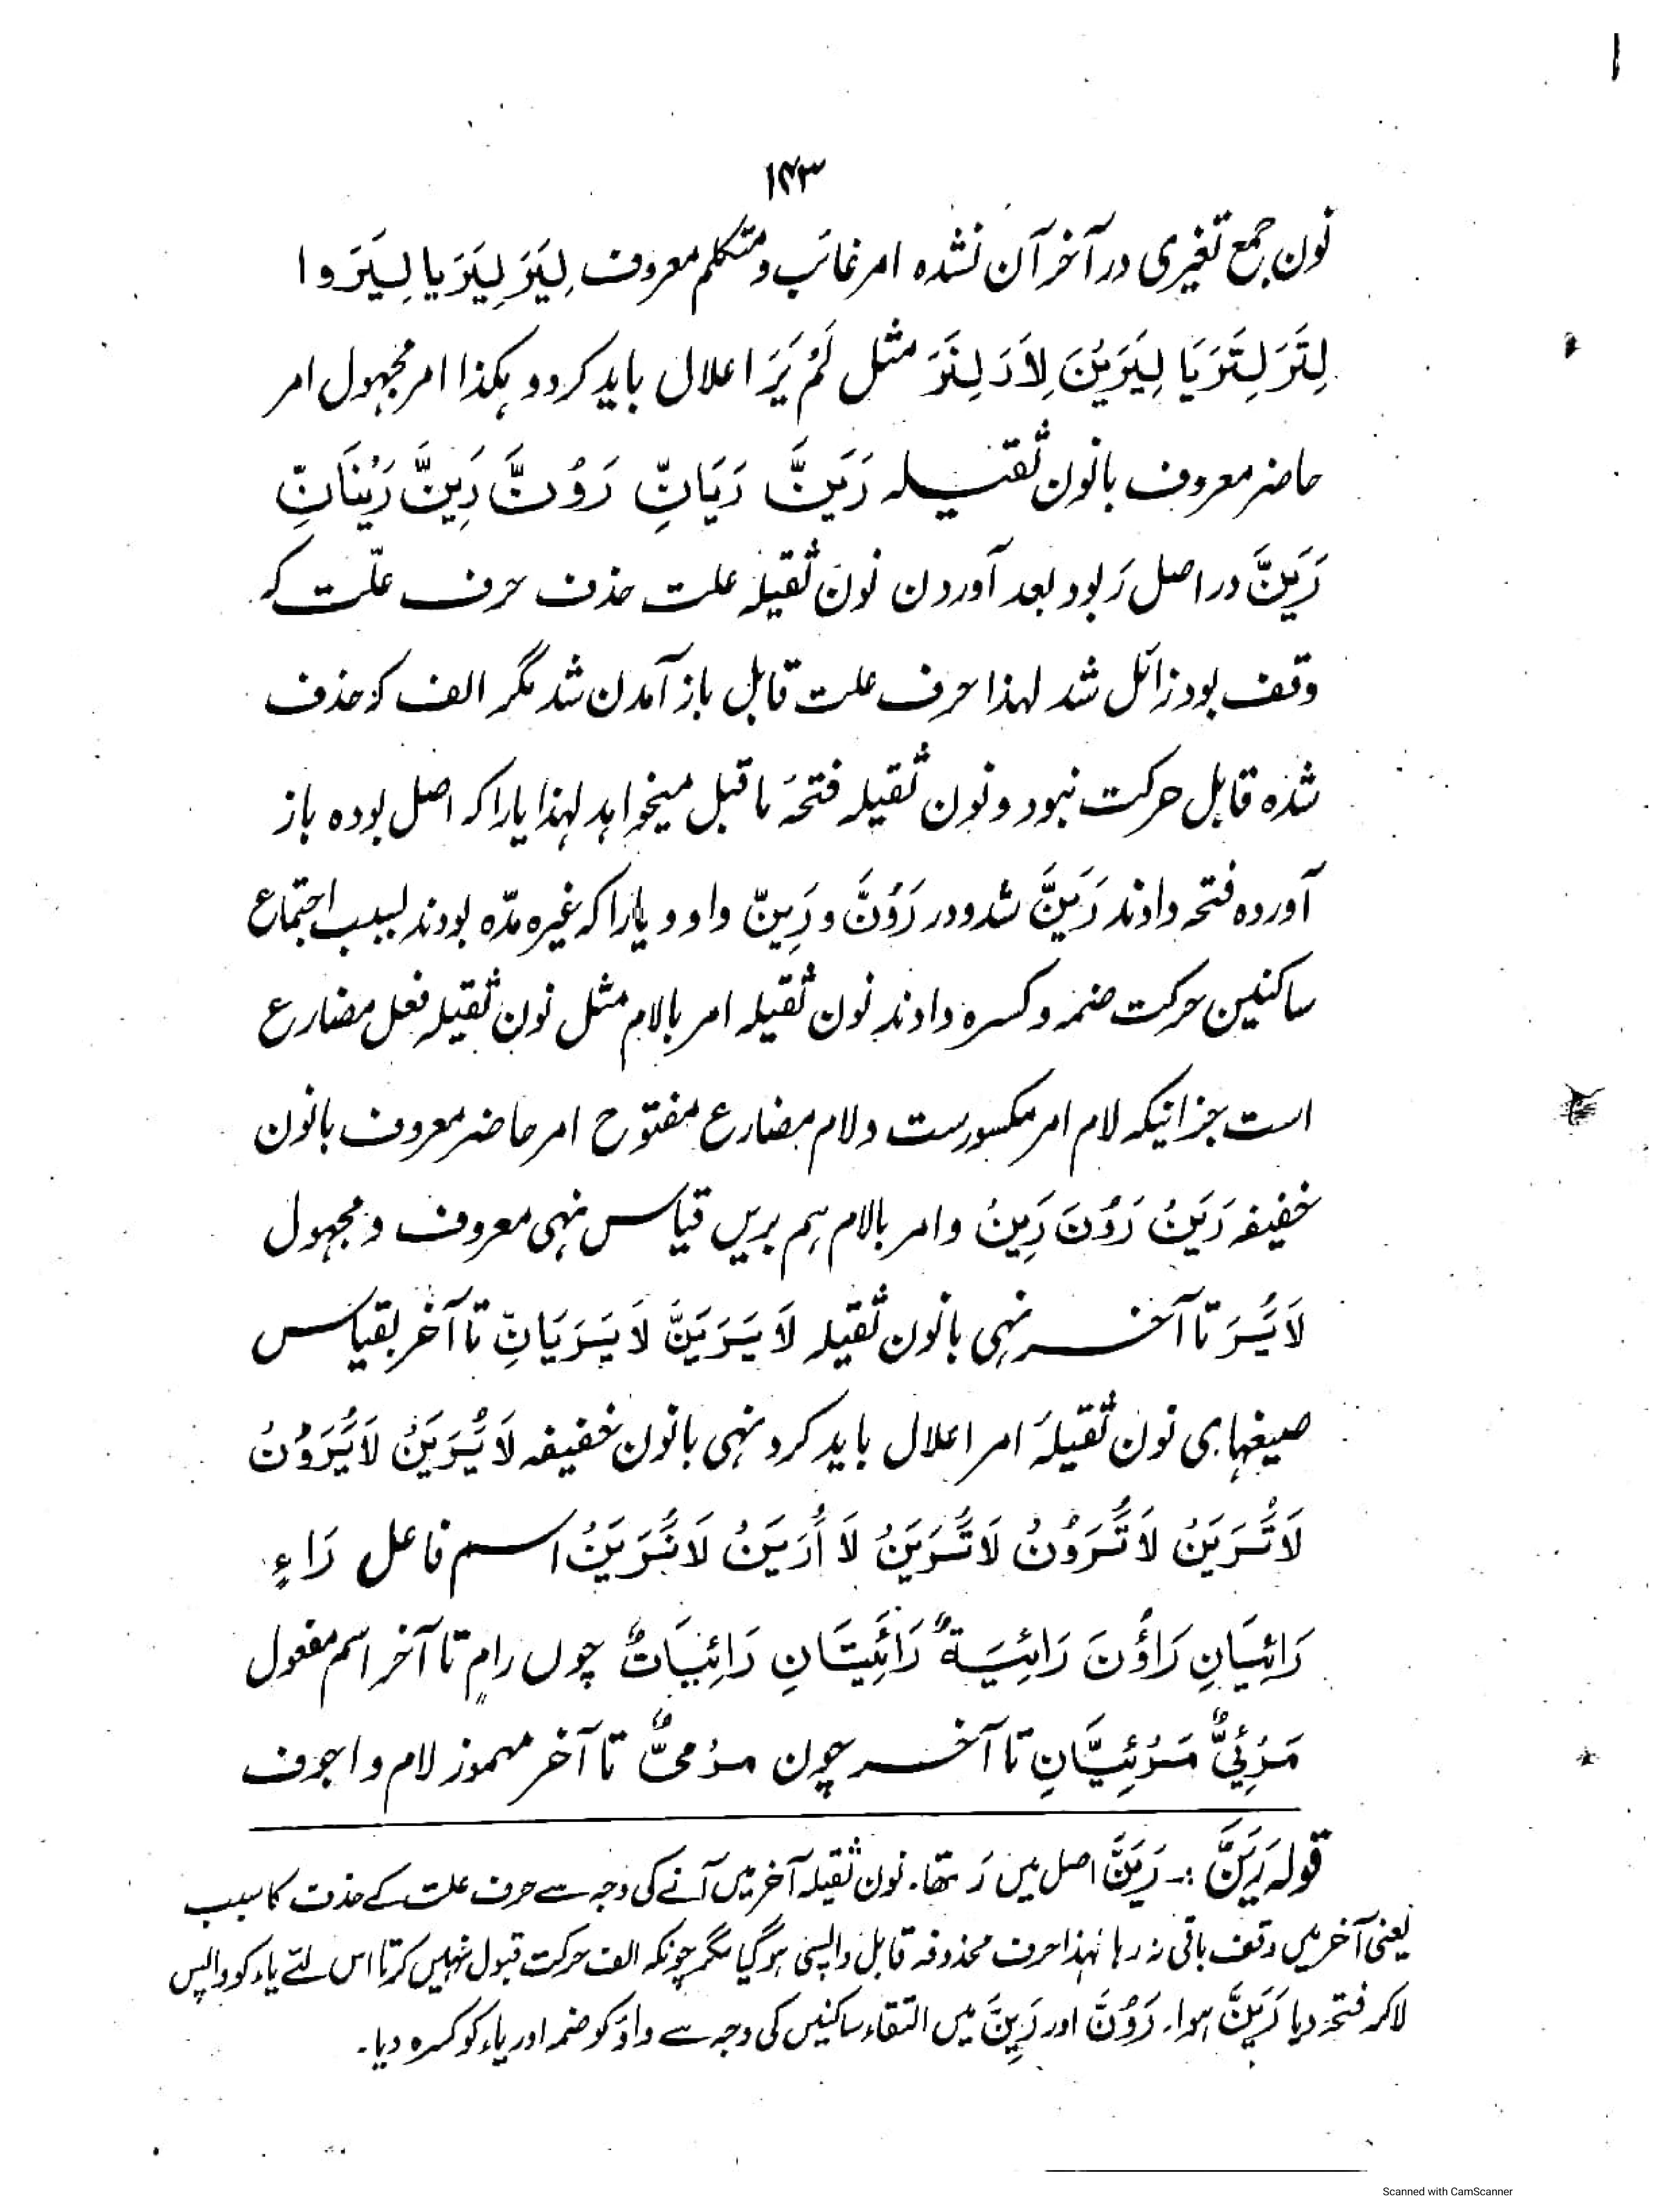 ۱۴۳
نون جمع تغیری در آخر آن نشده امر غائب و متکلم معروف لِیَرَ لِیَرَیا لِیَرَوا
لِتَرَ لِتَرَیَا لِیَرَیْنَ لِاَرَ لِنَرَ مثل لَمْ یَرَ اعلال باید کرد و ہکذا امر مجہول امر
حاضر معروف بانون ثقیلہ رَیَنَّ رَیَانِّ رَوُنَّ رَیِنَّ رَیْنَانِّ
رَیَنَّ در اصل رَ بود بعد آوردن نون ثقیلہ علت حذف حرف علّت کہ
وقف بود زائل شد لہذا حرف علت قابل باز آمدن شد مگر الف کہ حذف
شدہ قابل حرکت نبود و نون ثقیلہ فتحۂ ماقبل میخواہد لہذا یا را کہ اصل بودہ باز
آوردہ فتحہ دادند رَیَنَّ شد و در رَوُنَّ و رَیِنَّ واو و یا را کہ غیرہ مدّہ بودند بسبب اجتماع
ساکنین حرکت ضمہ و کسرہ دادند نون ثقیلہ امر بالام مثل نون ثقیلہ فعل مضارع
است جز اینکہ لام امر مکسورست و لام مضارع مفتوح امر حاضر معروف بانون
خفیفہ رَیَنْ رَوُنْ رَیِنْ وامر بالام ہم بریں قیاس نہی معروف و مجہول
لَا یُرَ تا آخر نہی بانون ثقیلہ لَا یَرَیَنَّ لَا یَرَیَانِّ تا آخر بقیاس
صیغہای نون ثقیلۂ امر اعلال باید کرد نہی بانون خفیفہ لَا یُرَیَنْ لَا یُرَوُنْ
لَا تُرَیَنْ لَا تُرَوُنْ لَا تُرَیِنْ لَا اُرَیَنْ لَا نُرَیَنْ اسم فاعل رَاءٍ
رَائِیَانِ رَاؤُنَ رَائِیَۃٌ رَائِیَتَانِ رَائِیَاتٌ چوں رامٍ تا آخر اسم مفعول
مَرْئِیٌّ مَرْئِیَّانِ تا آخر چون مرْمیٌّ تا آخر مہموز لام و اجوف
قولہ رَیَنَّ :۔ رَیَنَّ اصل میں رَ تھا۔ نون ثقیلہ آخر میں آنے کی وجہ سے حرف علت کے حذف کا سبب
یعنی آخر میں وقف باقی نہ رہا لہذا حرف محذوفہ قابل واپسی ہوگیا مگر چونکہ الف حرکت قبول نہیں کرتا اس لئے یاء کو واپس
لاکر فتحہ دیا رَیَنَّ ہوا۔ رَوُنَّ اور رَیِنَّ میں التقاء ساکنیں کی وجہ سے واؤ کو ضمہ اور یاء کو کسرہ دیا۔
Scanned with CamScanner